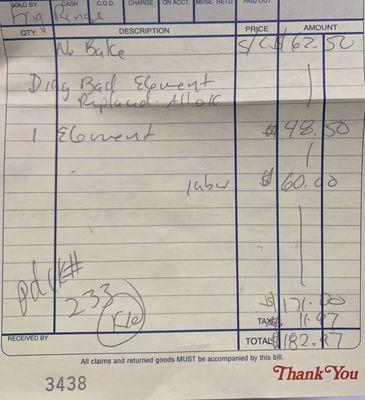 SOLD BY CASH C.O.D. CHARGE ON ACCT. MDSE. RETD. PAID OUT
Frig Range
QTY. DESCRIPTION PRICE AMOUNT
No Bake S/C $62.50
Diag Bad Element
Replaced. All OK
1 Element $48.50
labor $60.00
pd ck#
233
$171.00
TAX $11.97
RECEIVED BY TOTAL $182.97
All claims and returned goods MUST be accompanied by this bill.
3438 Thank You